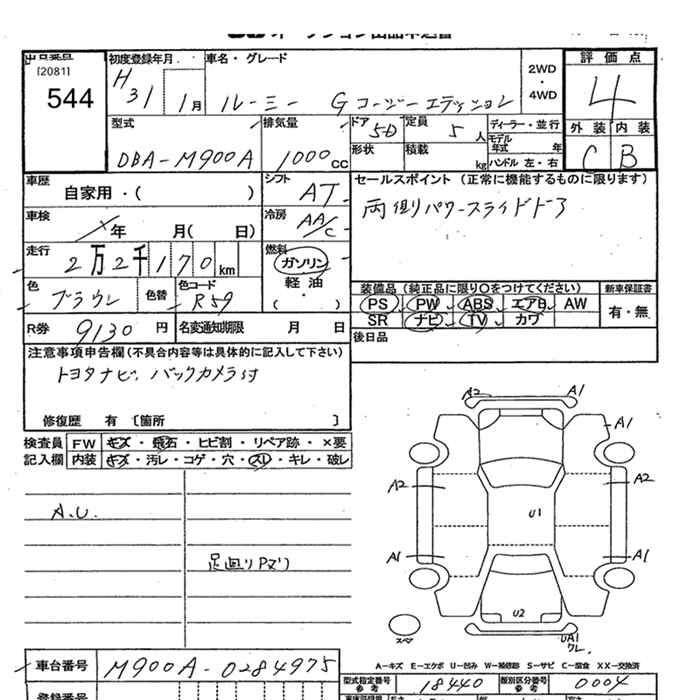 [2081]
544
初度登録年月
H 31 1月
車名・グレード
ルーミー Gコージーエディション
2WD
・
4WD
評価点
4
外装 内装
C B
型式
DBA-M900A
排気量
1000 CC
ドア 5D
定員 5 人
ディーラー・並行
モデル年式 年
形状
積載 kg
ハンドル 左・右
車歴
自家用・( )
シフト AT
セールスポイント (正常に機能するものに限ります)
両側パワースライドドア
車検
年 月( 日)
冷房 AA/C
走行
2万2千170 km
燃料
ガソリン
軽油
・
( )
色
色替
色コード
R59
装備品 (純正品に限り○をつけてください)
新車保証書
PS PW ABS エアB AW
SR ナビ TV カワ
有・無
R券 9130 円
名変通知期限 月 日
後日品
注意事項申告欄(不具合内容等は具体的に記入して下さい)
トヨタナビ. バックカメラ付
修復歴 有 〔箇所 〕
検査員 FW キズ・飛石・ヒビ割・リペア跡・×要
記入欄 内装 キズ・汚レ・コゲ・穴・スレ・キレ・破レ
A.U.
足廻りPヌリ
A2 A1
A1
A2 A2
U1
A1 A1
U2
UA1
クレ.
スペア
A－キズ E－エクボ U－凹み W－補修跡 S－サビ C－腐食 XX－交換済
車台番号 M900A-0284975
型式指定番号
参考
18440
類別区分番号
参考
0004
登録番号